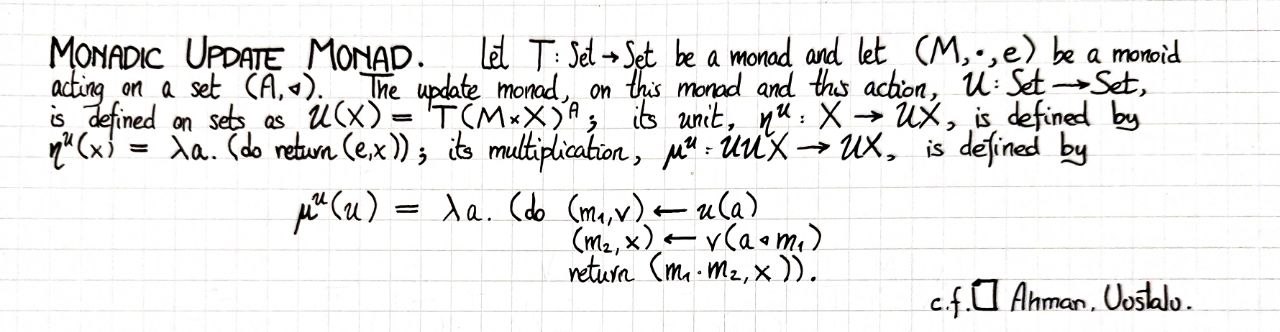 MONADIC UPDATE MONAD. Let T : Set → Set be a monad and let (M, ·, e) be a monoid
acting on a set (A, ◃). The update monad, on this monad and this action, U : Set → Set,
is defined on sets as U(X) = T(M × X)ᴬ ; its unit, ηᵘ : X → UX, is defined by
ηᵘ(x) = λa. (do return (e,x)) ; its multiplication, μᵘ : UUX → UX, is defined by
μᵘ(u) = λa. (do (m₁,v) ← u(a)
(m₂,x) ← v(a ◃ m₁)
return (m₁·m₂, x)).
c.f. □ Ahman, Uustalu.